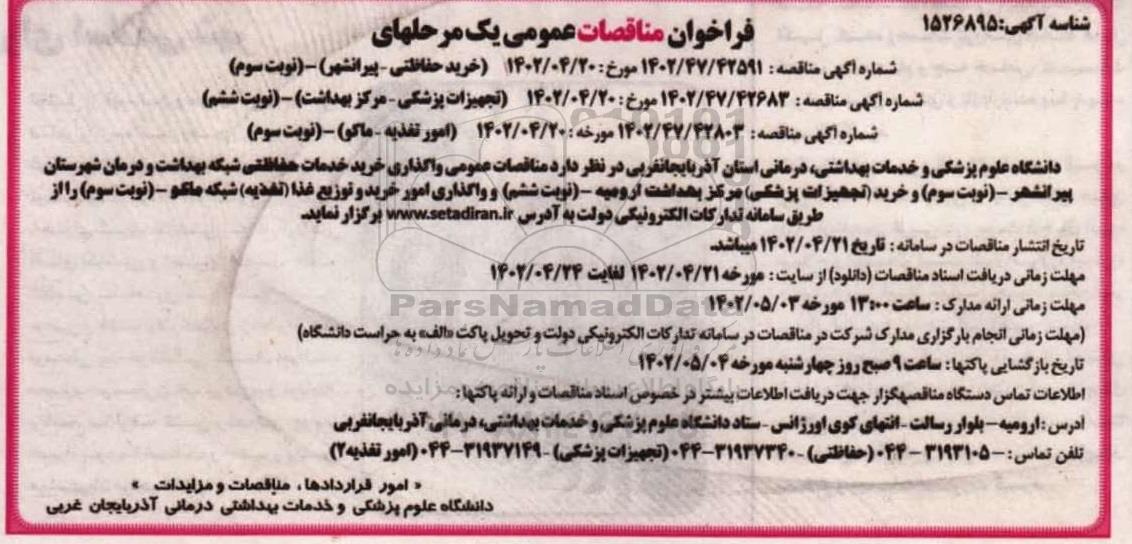 شناسه آگهی: ۱۵۲۶۸۹۵
فراخوان مناقصات عمومی یک مرحله‌ای
شماره آگهی مناقصه: ۱۴۰۲/۴۷/۴۲۵۹۱ مورخ: ۱۴۰۲/۰۴/۲۰ (خرید حفاظتی - پیرانشهر) - (نوبت سوم)
شماره آگهی مناقصه: ۱۴۰۲/۴۷/۴۲۶۸۳ مورخ: ۱۴۰۲/۰۴/۲۰ (تجهیزات پزشکی - مرکز بهداشت) - (نوبت ششم)
شماره آگهی مناقصه: ۱۴۰۲/۴۷/۴۲۸۰۳ مورخه: ۱۴۰۲/۰۴/۲۰ (امور تغذیه - ماکو) - (نوبت سوم)
دانشگاه علوم پزشکی و خدمات بهداشتی، درمانی استان آذربایجانغربی در نظر دارد مناقصات عمومی واگذاری خرید خدمات حفاظتی شبکه بهداشت و درمان شهرستان
پیرانشهر - (نوبت سوم) و خرید (تجهیزات پزشکی) مرکز بهداشت ارومیه - (نوبت ششم) و واگذاری امور خرید و توزیع غذا (تغذیه) شبکه ماکو - (نوبت سوم) را از
طریق سامانه تدارکات الکترونیکی دولت به آدرس www.setadiran.ir برگزار نماید.
تاریخ انتشار مناقصات در سامانه: تاریخ ۱۴۰۲/۰۴/۲۱ میباشد.
مهلت زمانی دریافت اسناد مناقصات (دانلود) از سایت: مورخه ۱۴۰۲/۰۴/۲۱ لغایت ۱۴۰۲/۰۴/۲۴
مهلت زمانی ارائه مدارک: ساعت ۱۳:۰۰ مورخه ۱۴۰۲/۰۵/۰۳
ParsNamadData
(مهلت زمانی انجام بارگزاری مدارک شرکت در مناقصات در سامانه تدارکات الکترونیکی دولت و تحویل پاکت «الف» به حراست دانشگاه)
تاریخ بازگشایی پاکتها: ساعت ۹ صبح روز چهارشنبه مورخه ۱۴۰۲/۰۵/۰۴
اطلاعات تماس دستگاه مناقصهگزار جهت دریافت اطلاعات بیشتر در خصوص اسناد مناقصات و ارائه پاکتها:
آدرس: ارومیه - بلوار رسالت - انتهای کوی اورژانس - ستاد دانشگاه علوم پزشکی و خدمات بهداشتی، درمانی آذربایجانغربی
تلفن تماس: ۳۱۹۳۱۰۵۰ - ۰۴۴ (حفاظتی) - ۳۱۹۳۷۳۴۰-۰۴۴ (تجهیزات پزشکی) - ۳۱۹۳۷۱۴۹-۰۴۴ (امور تغذیه۲)
« امور قراردادها، مناقصات و مزایدات »
دانشگاه علوم پزشکی و خدمات بهداشتی درمانی آذربایجان غربی